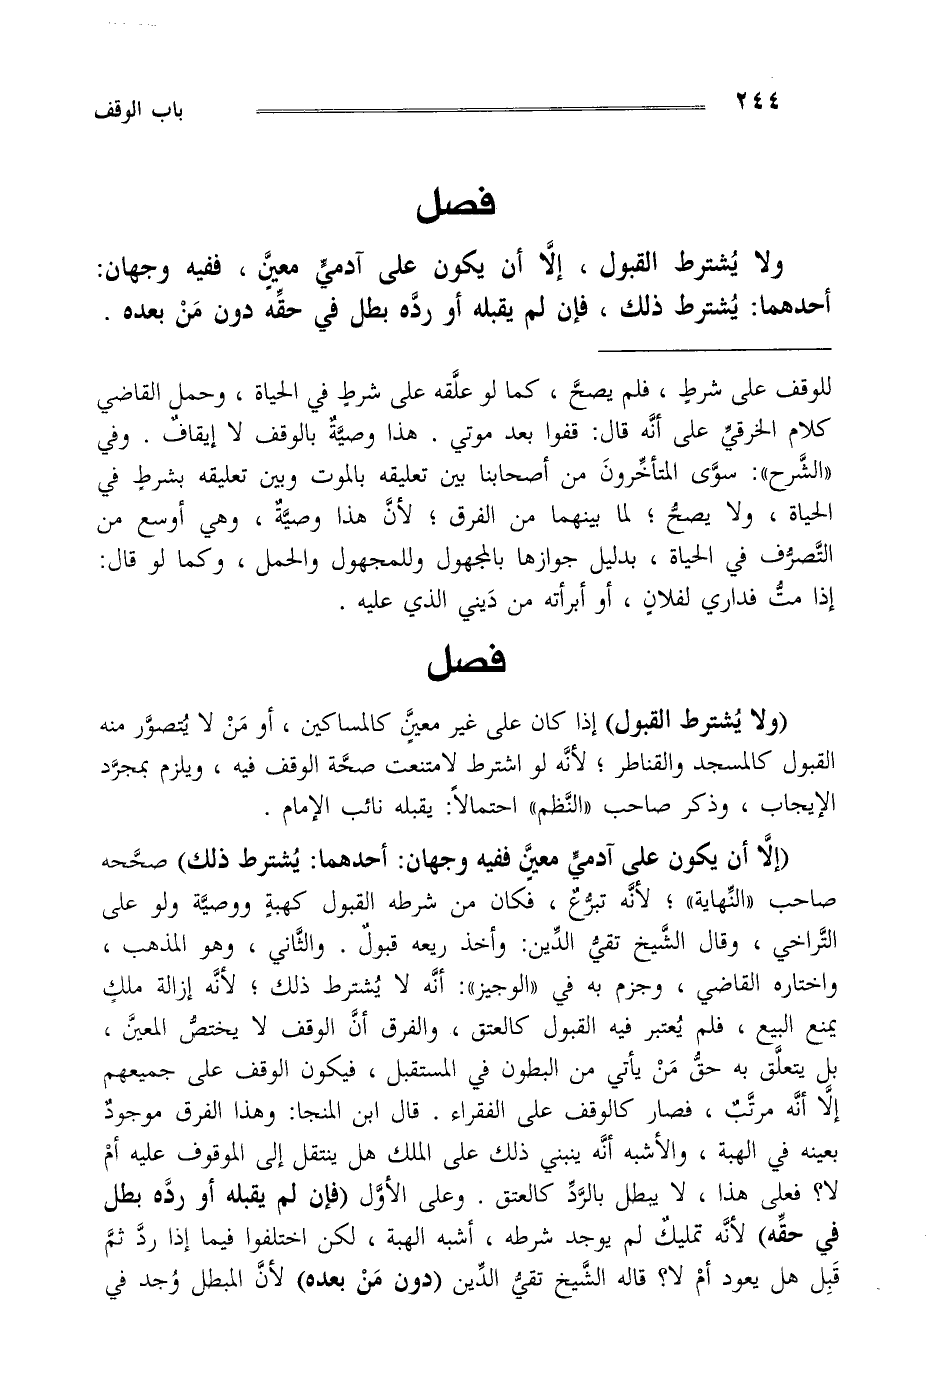 ٢٤٤ باب الوقف
فصل
ولا يُشترط القبول ، إلَّا أن يكون على آدميٍّ معينَّ ، ففيه وجهان:
أحدهما: يُشترط ذلك ، فإن لم يقبله أو ردَّه بطل في حقِّه دون مَنْ بعده .
للوقف على شرطٍ ، فلم يصحَّ ، كما لو علَّقه على شرطٍ في الحياة ، وحمل القاضي
كلام الخرقيِّ على أنَّه قال: قفوا بعد موتي . هذا وصيَّةٌ بالوقف لا إيقافٌ . وفي
«الشَّرح»: سوَّى المتأخِّرونَ من أصحابنا بين تعليقه بالموت وبين تعليقه بشرطٍ في
الحياة ، ولا يصحُّ ؛ لما بينهما من الفرق ؛ لأنَّ هذا وصيَّةٌ ، وهي أوسع من
التَّصرُّف في الحياة ، بدليل جوازها بالمجهول وللمجهول والحمل ، وكما لو قال:
إذا متُّ فداري لفلانٍ ، أو أبرأته من دَيني الذي عليه .
فصل
(ولا يُشترط القبول) إذا كان على غير معينٍّ كالمساكين ، أو مَنْ لا يُتصوَّر منه
القبول كالمسجد والقناطر ؛ لأنَّه لو اشترط لامتنعت صحَّة الوقف فيه ، ويلزم بمجرَّد
الإيجاب ، وذكر صاحب «النَّظم» احتمالاً: يقبله نائب الإمام .
(إلَّا أن يكون على آدميٍّ معينٍّ ففيه وجهان: أحدهما: يُشترط ذلك) صحَّحه
صاحب «النِّهاية» ؛ لأنَّه تبرُّعٌ ، فكان من شرطه القبول كهبةٍ ووصيَّة ولو على
التَّراخي ، وقال الشَّيخ تقيُّ الدِّين: وأخذ ريعه قبولٌ . والثَّاني ، وهو المذهب ،
واختاره القاضي ، وجزم به في «الوجيز»: أنَّه لا يُشترط ذلك ؛ لأنَّه إزالة ملكٍ
يمنع البيع ، فلم يُعتبر فيه القبول كالعتق ، والفرق أنَّ الوقف لا يختصُّ المعينَّ ،
بل يتعلَّق به حقُّ مَنْ يأتي من البطون في المستقبل ، فيكون الوقف على جميعهم
إلَّا أنَّه مرتَّبٌ ، فصار كالوقف على الفقراء . قال ابن المنجا: وهذا الفرق موجودٌ
بعينه في الهبة ، والأشبه أنَّه ينبني ذلك على الملك هل ينتقل إلى الموقوف عليه أمْ
لا؟ فعلى هذا ، لا يبطل بالرَّدِّ كالعتق . وعلى الأوَّل (فإن لم يقبله أو ردَّه بطل
في حقِّه) لأنَّه تمليكٌ لم يوجد شرطه ، أشبه الهبة ، لكن اختلفوا فيما إذا ردَّ ثمَّ
قَبِل هل يعود أمْ لا؟ قاله الشَّيخ تقيُّ الدِّين (دون مَنْ بعده) لأنَّ المبطل وُجد في